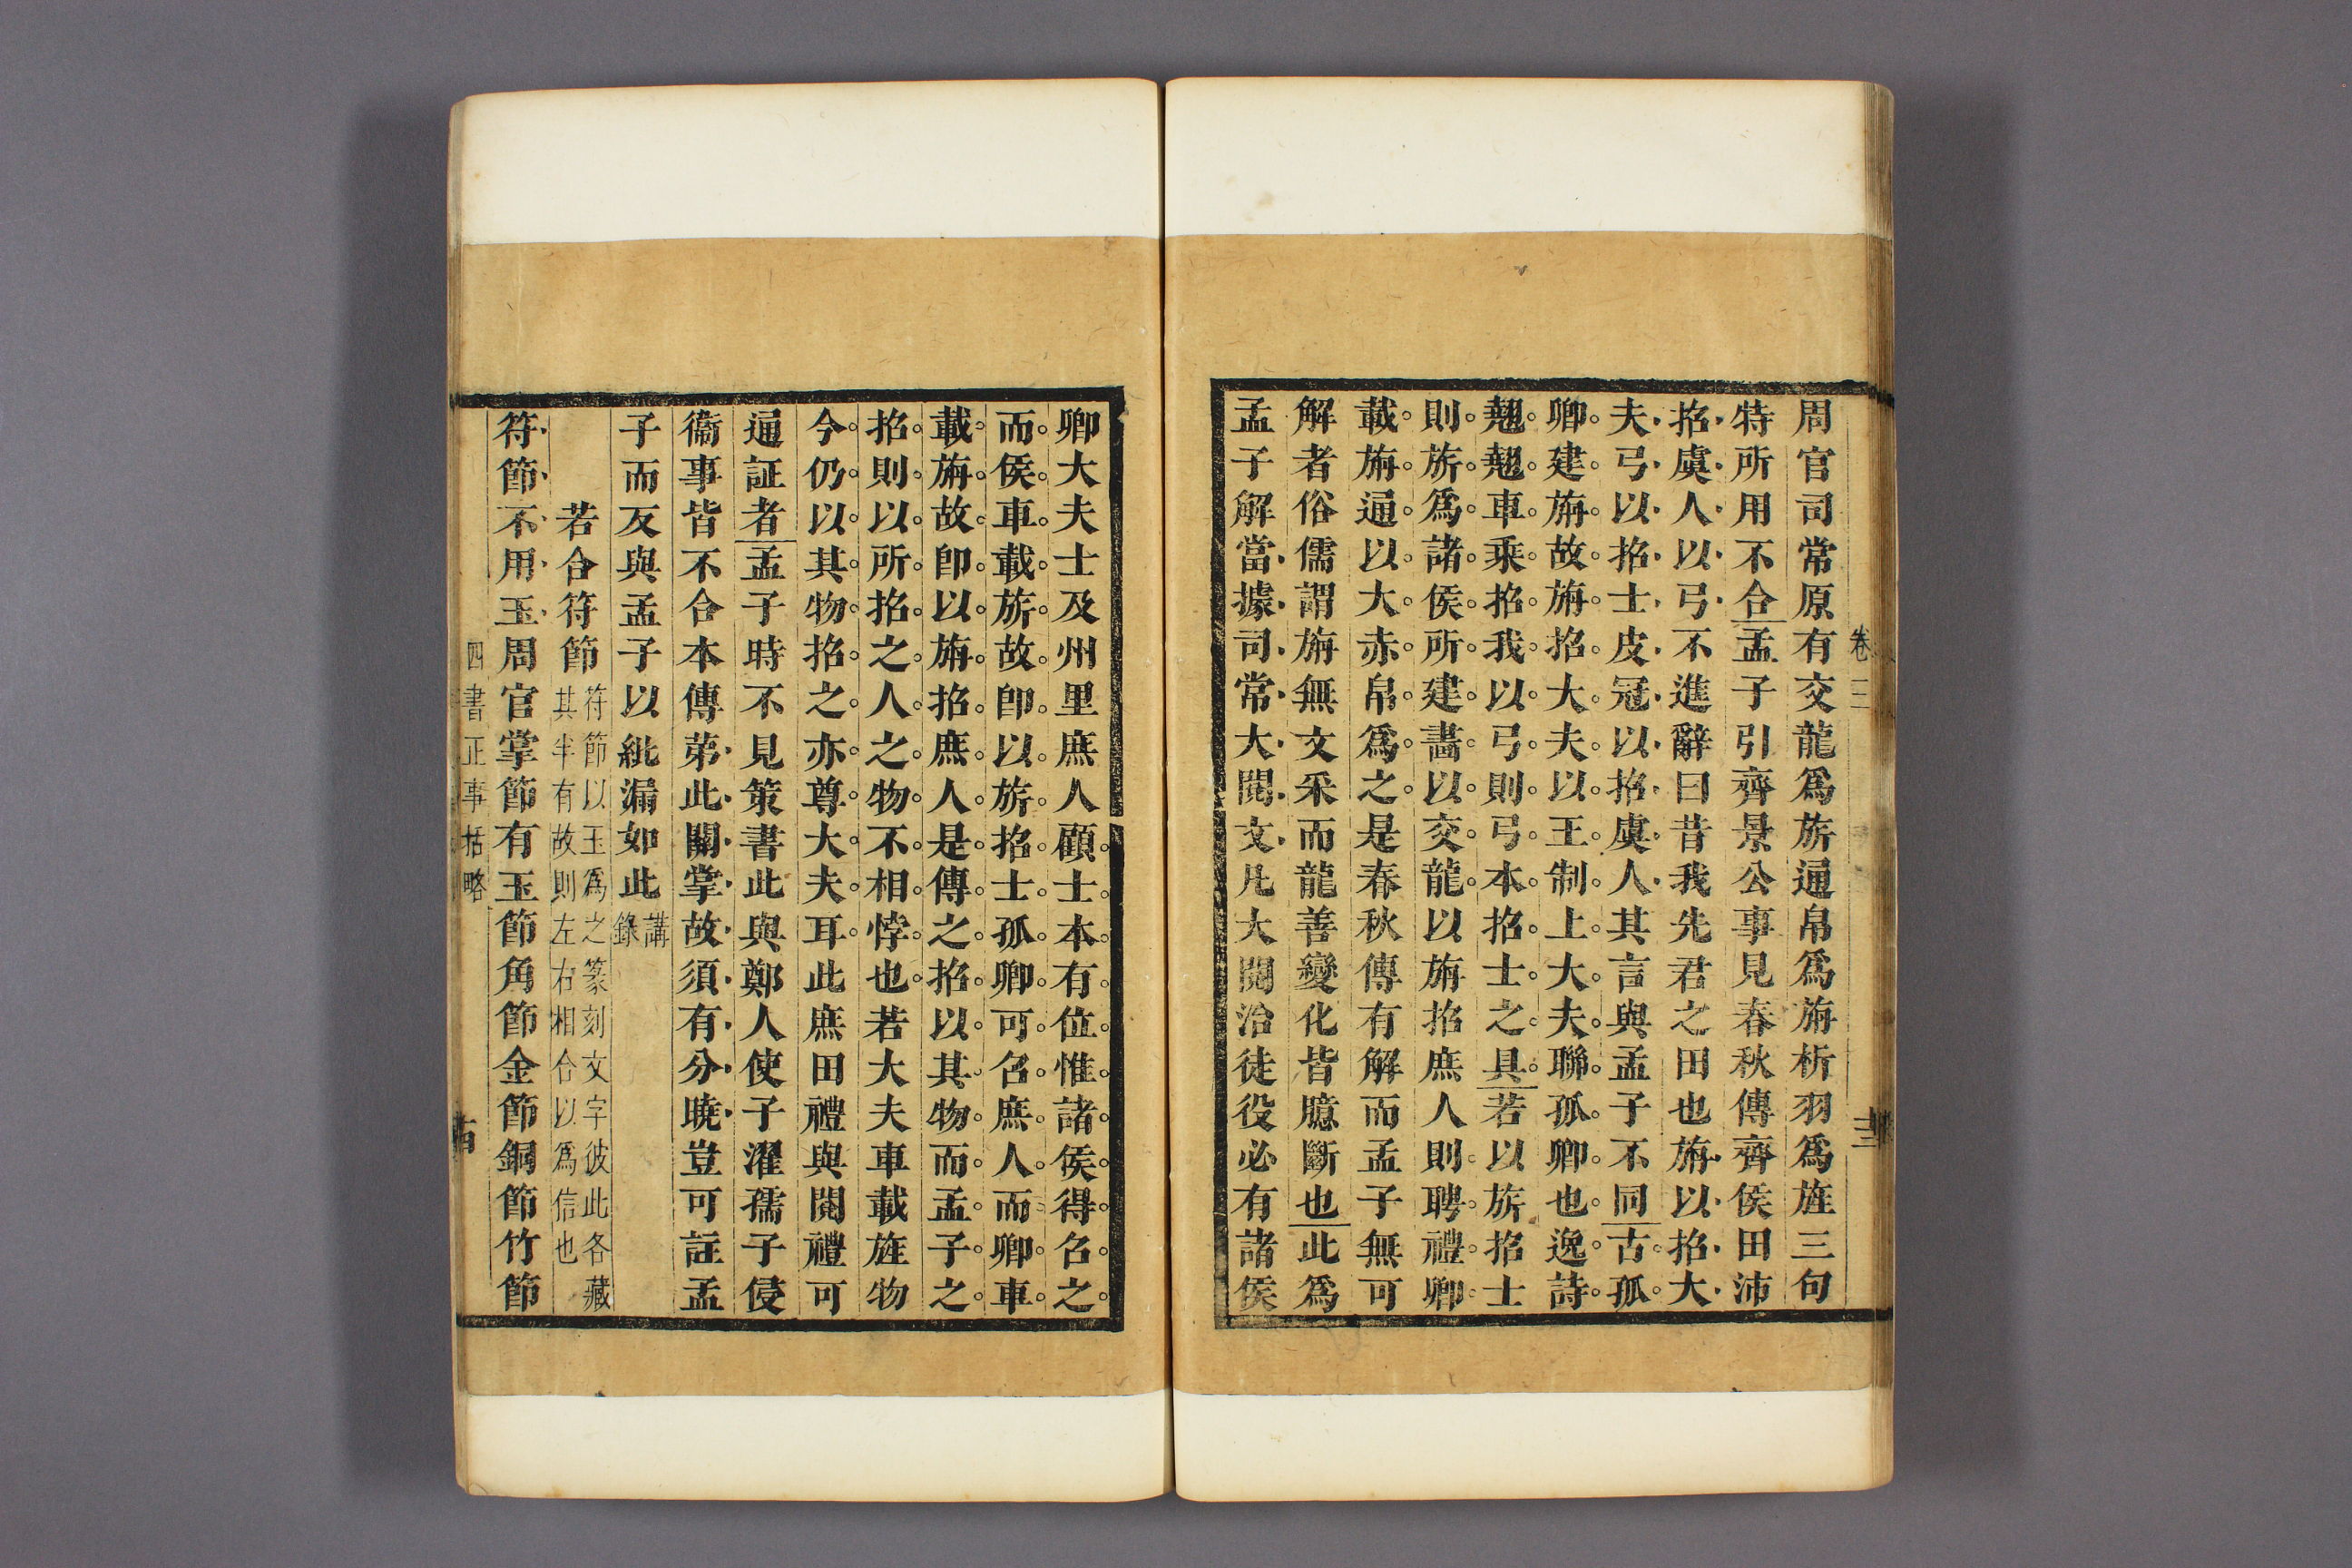 卷三
十三
周官司常原有交龍爲旂通帛爲旃析羽爲旌三句
特所用不合孟子引齊景公事見春秋傳齊侯田沛
招虞人以弓不進辭曰昔我先君之田也旃以招大
夫弓以招士皮冠以招虞人其言與孟子不同古孤
卿建旃故旃招大夫以王制上大夫聯孤卿也逸詩
翹翹車乘招我以弓則弓本招士之具若以旂招士
則旂爲諸侯所建畵以交龍以旃招庶人則聘禮卿
載旃通以大赤帛爲之是春秋傳有解而孟子無可
解者俗儒謂旃無文采而龍善變化皆臆斷也此爲
孟子解當據司常大閱文凡大閱治徒役必有諸侯
卿大夫士及州里庶人顧士本有位惟諸侯得名之
而侯車載旂故卽以旂招士孤卿可名庶人而卿車
載旃故卽以旃招庶人是傳之招以其物而孟子之
招則以所招之人之物不相悖也若大夫車載旌物
今仍以其物招之亦尊大夫耳此庶田禮與閱禮可
通証者孟子時不見策書此與鄭人使子濯孺子侵
衞事皆不合本傳苐此關掌故須有分曉豈可註孟
子而反與孟子以紕漏如此講
錄
若合符節符節以玉爲之篆刻文字彼此各藏
其半有故則左右相合以爲信也
符節不用玉周官掌節有玉節角節金節銅節竹節
四書正事括略